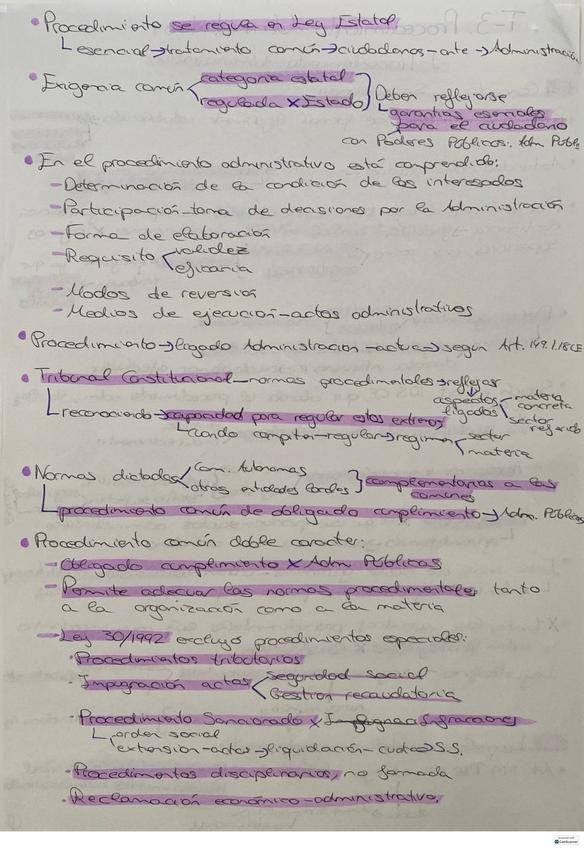 • Procedimiento se regula en Ley Estatal
↳ esencial → tratamiento común → ciudadanos - ante → Administración
• Exigencia común < categoría estatal
regulada x Estado } Deben reflejarse
↳ garantías esenciales
para el ciudadano
con Poderes Públicos. Adm Públic
• En el procedimiento administrativo está comprendido:
- Determinación de la condición de los interesados
- Participación - toma de decisiones por la Administración
- Forma de elaboración
- Requisito < validez
eficacia
- Modos de reversión
- Medios de ejecución - actos administrativos
• Procedimiento → ligado Administración - actua → según Art. 149.1.18 CE
• Tribunal Constitucional - normas procedimentales → reflejar
aspectos
ligados < materia
concreta
sector
referido
↳ reconociendo → capacidad para regular estos extremos
↳ cuando compitan - regular → regimen < sector
materia
• Normas dictadas < Com. Autonomas
otras entidades locales } complementarias a las
comunes
↳ procedimiento común de obligado cumplimiento → Adm. Públicas
• Procedimiento común doble caracter:
- Obligado cumplimiento x Adm Públicas
- Permite adecuar las normas procedimentales, tanto
a la organización como a la materia
- Ley 30/1992 excluyo procedimientos especiales:
· Procedimientos tributarios
· Impugnación actos < seguridad social
Gestion recaudatoria
· Procedimiento Sancionador x Infracciones
↳ orden social
extension - actas → liquidación - cuotas → S.S.
· Procedimientos disciplinarios, no formada
· Reclamación económico-administrativo.
CamScanner